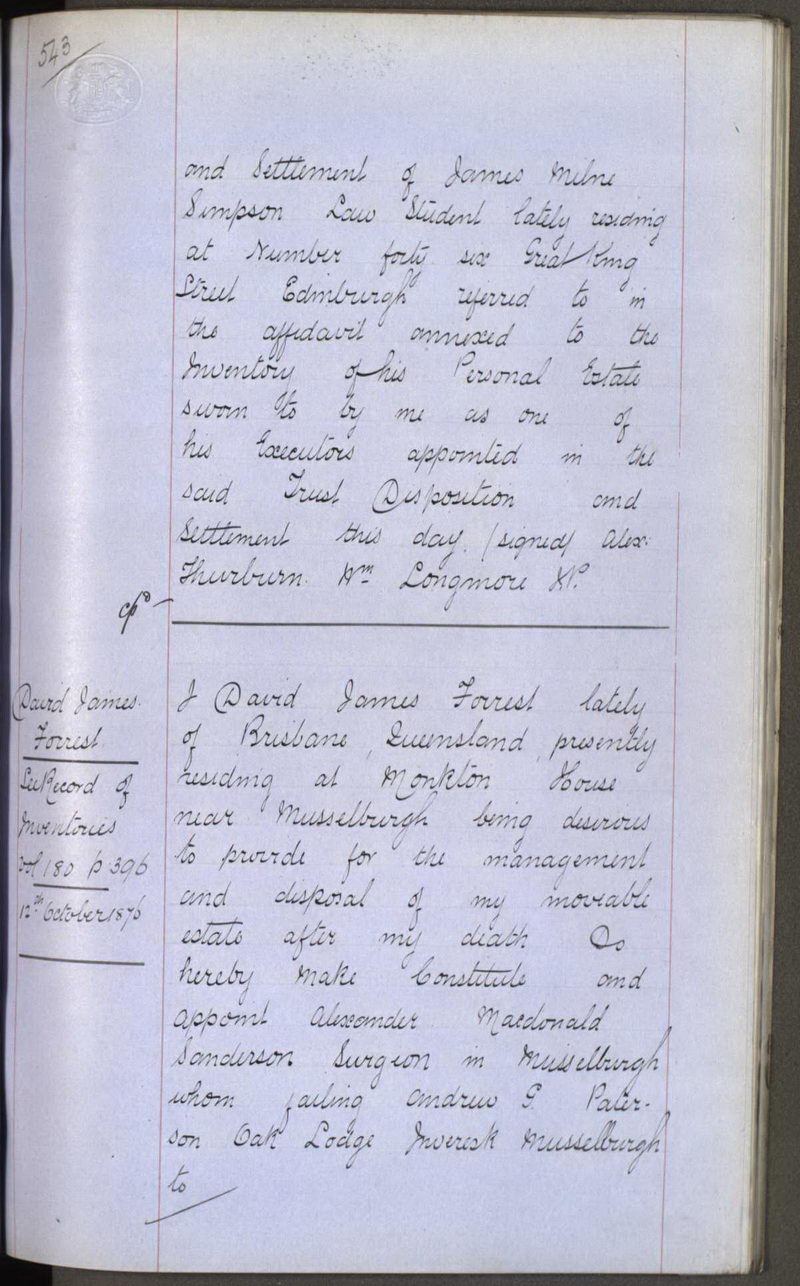 543
and Settlement of James Milne
Simpson Law Student lately residing
at Number forty six Great King
Street Edinburgh referred to in
the affidavit annexed to the
Inventory of his Personal Estate
sworn to by me as one of
his Executors appointed in the
said Trust Disposition and
Settlement this day. (signed) Alex:
Thurburn. Wm Longmore JP.
David James
Forrest
See Record of
Inventories
Vol 180 p 396
12th October 1876
I David James Forrest lately
of Brisbane, Queensland, presently
residing at Monkton House
near Musselburgh being desirous
to provide for the management
and disposal of my moveable
estate after my death Do
hereby Make Constitute and
Appoint Alexander Macdonald
Sanderson Surgeon in Musselburgh
whom failing Andrew G. Pater-
son Oak Lodge Inveresk Musselburgh
to